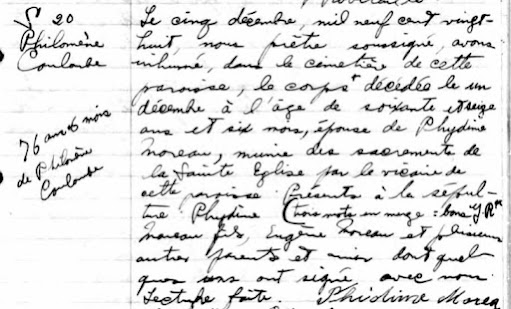 S 20
Philomène
Coulombe
76 ans 6 mois
de Philomène
Coulombe
Le cinq décembre, mil neuf cent vingt-
huit, nous prêtre soussigné, avons
inhumé, dans le cimetière de cette
paroisse, le corps + décédée le un
décembre à l'âge de soixante et seize
ans et six mois, épouse de Phydime
Moreau, munie des sacrements de
la Sainte Eglise par le vicaire de
cette paroisse. Présents à la sépul-
ture: Phydime (trois mots en marge = bons
Moreau fils, Eugène Moreau et plusieurs
autres parents et amis dont quel-
ques uns ont signé avec nous.
Lecture faite. Phidime Morea